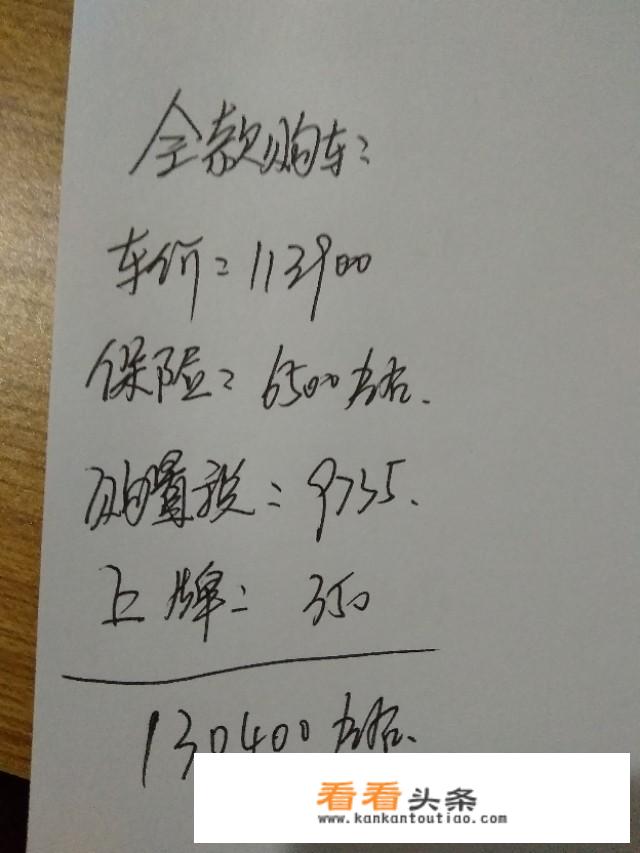 全款购车:
车价: 113900
保险: 6500左右.
购置税: 9735.
上牌: 350
130400左右.
看看头条
www.kankantoutiao.com